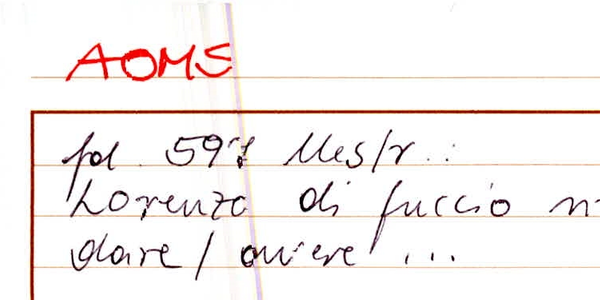 AOMS
fol. 597 Mes/r..:
Lorenzo di fuccio n
dare / avere ...